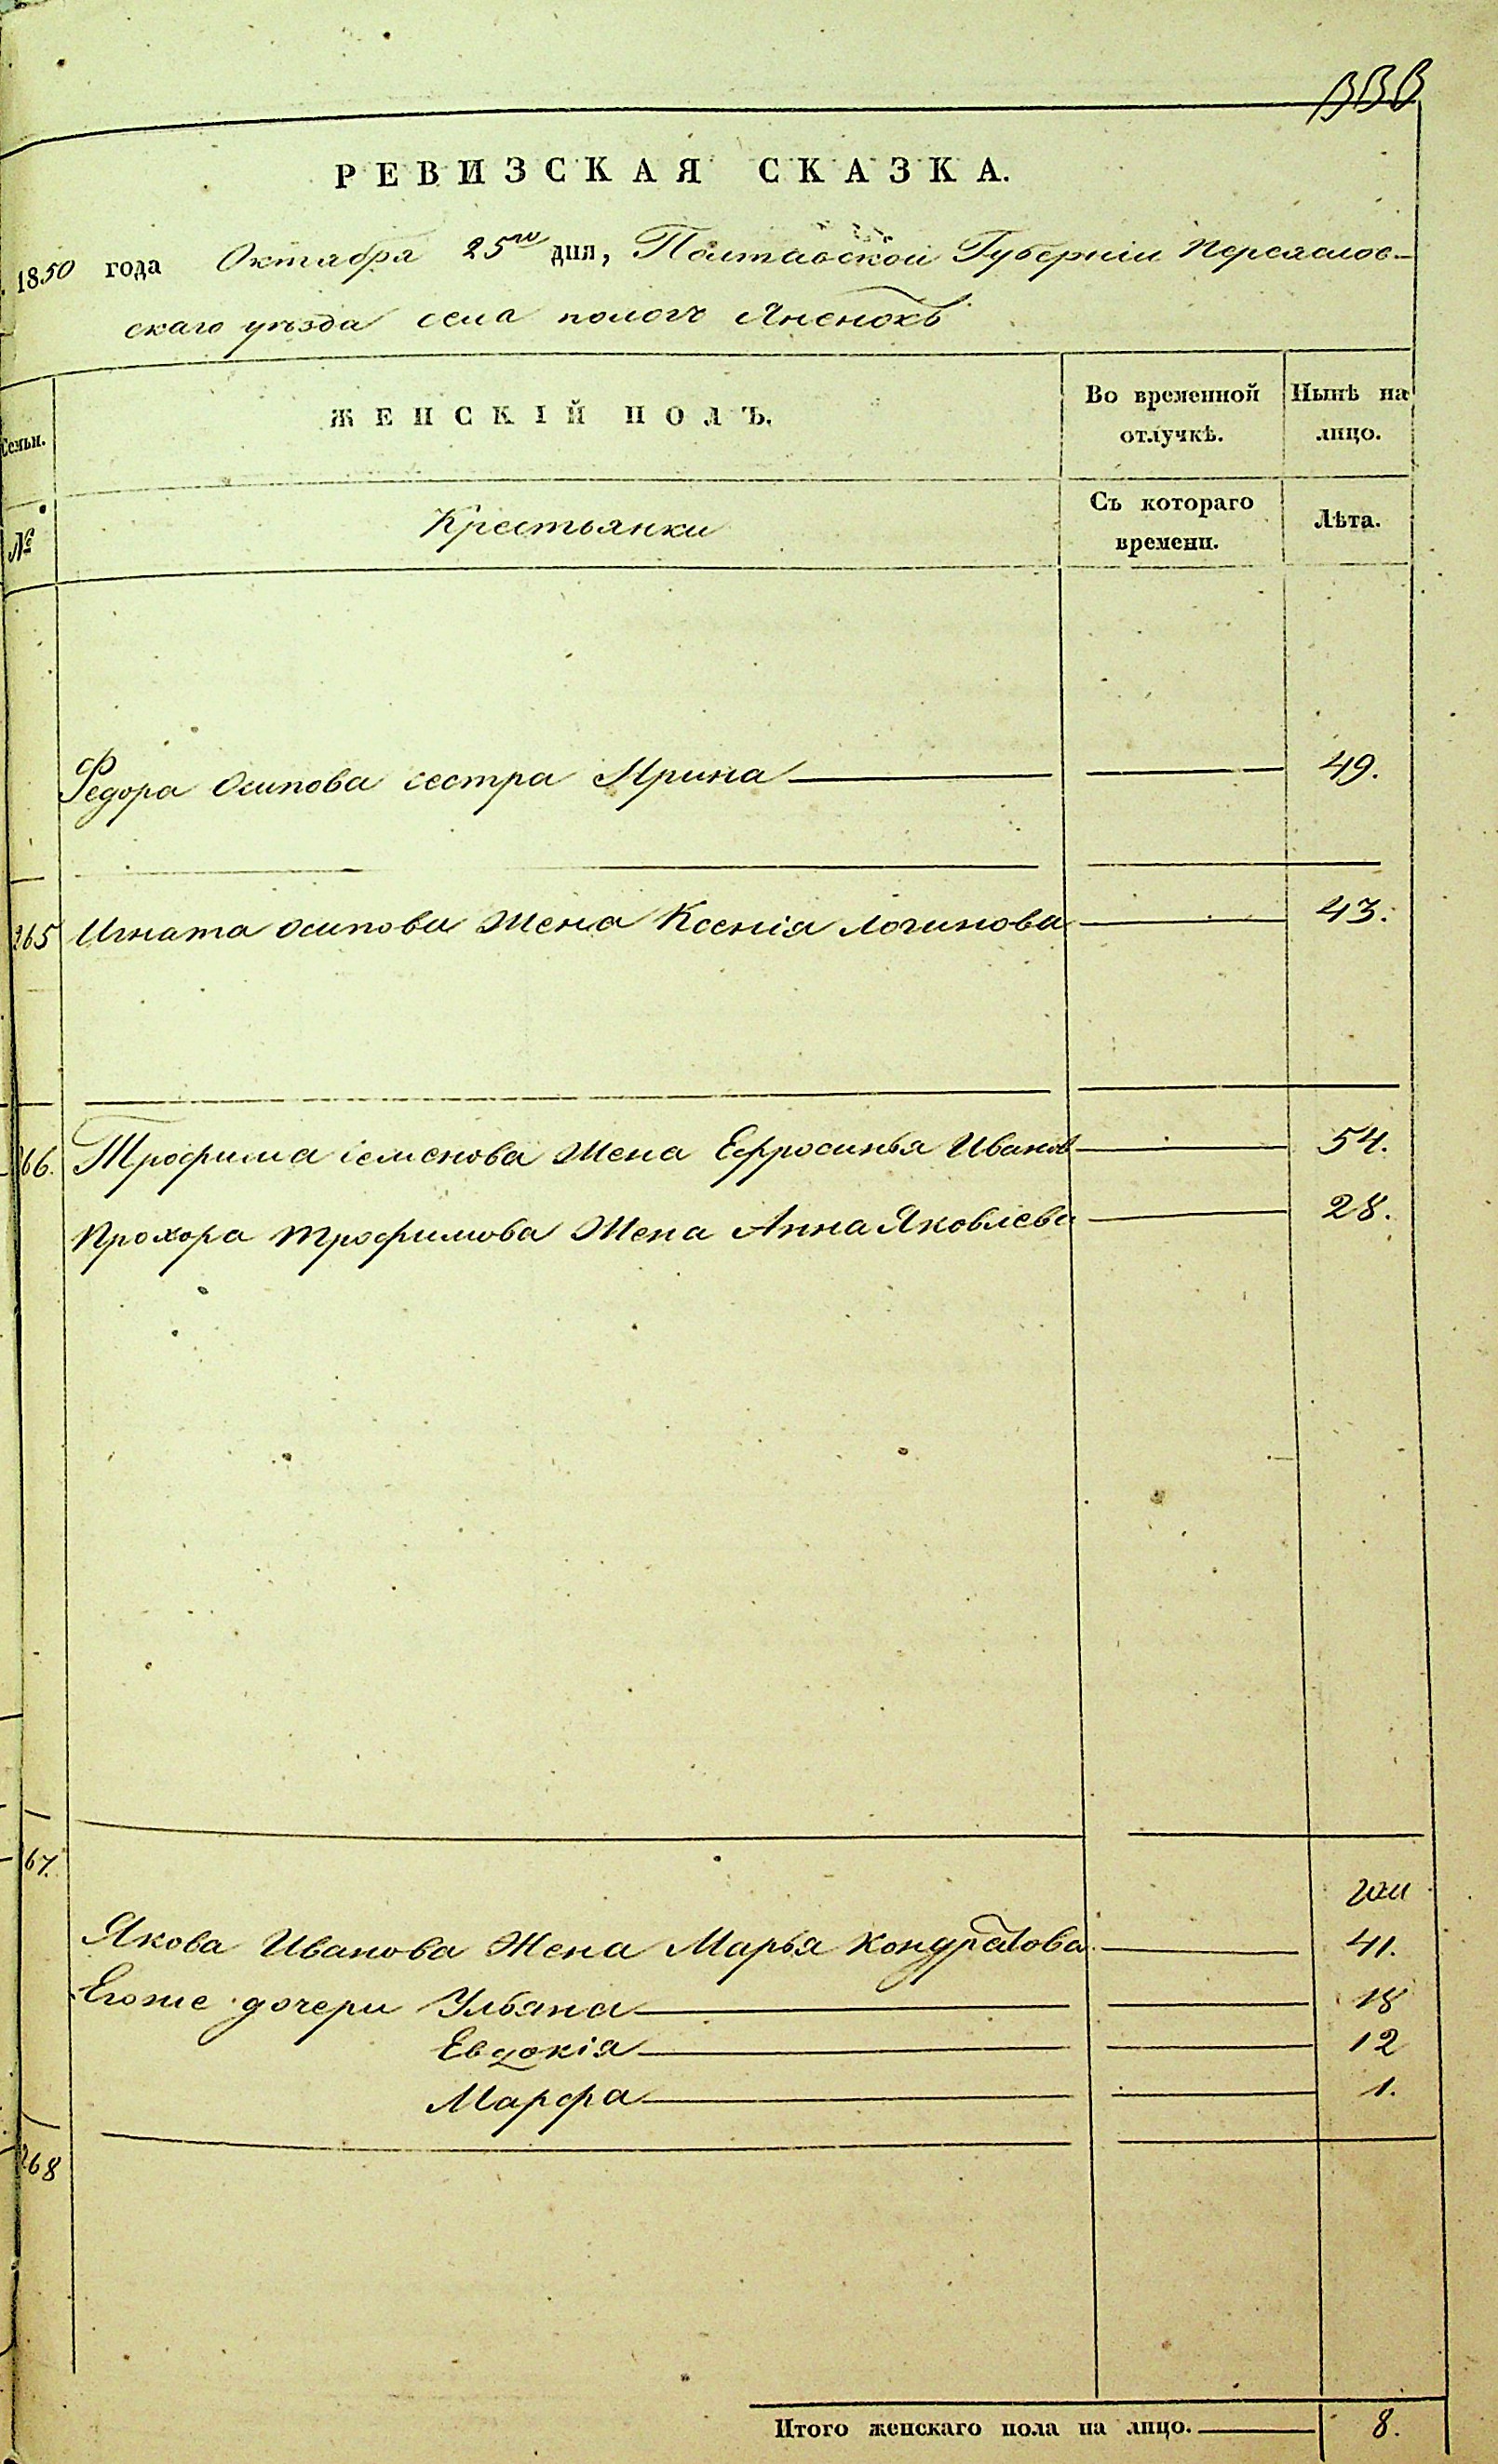 РЕВИЗСКАЯ СКАЗКА.
1850 года Октября 25го дня, Полтавской Губерніи Переяслов-
скаго уѣзда села пологъ Яненокъ
Семьи.
ЖЕНСКІЙ ПОЛЪ.
Во временной отлучкѣ.
Нынѣ на лицо.
№
Крестьянки
Съ котораго времени.
Лѣта.
Федора Осипова сестра Ирина 49.
265 Игната Осипова Жена Ксенія Логинова 43.
266. Трофима Семенова Жена Ефросинья Иванов 54.
Прохора Трофимова Жена Анна Яковлева 28.
67.
Якова Иванова Жена Марья Кондратова 41.
Егоже дочери Ульяна 18
Евдокія 12
Марфа 1.
268
Итого женскаго пола на лицо. 8.